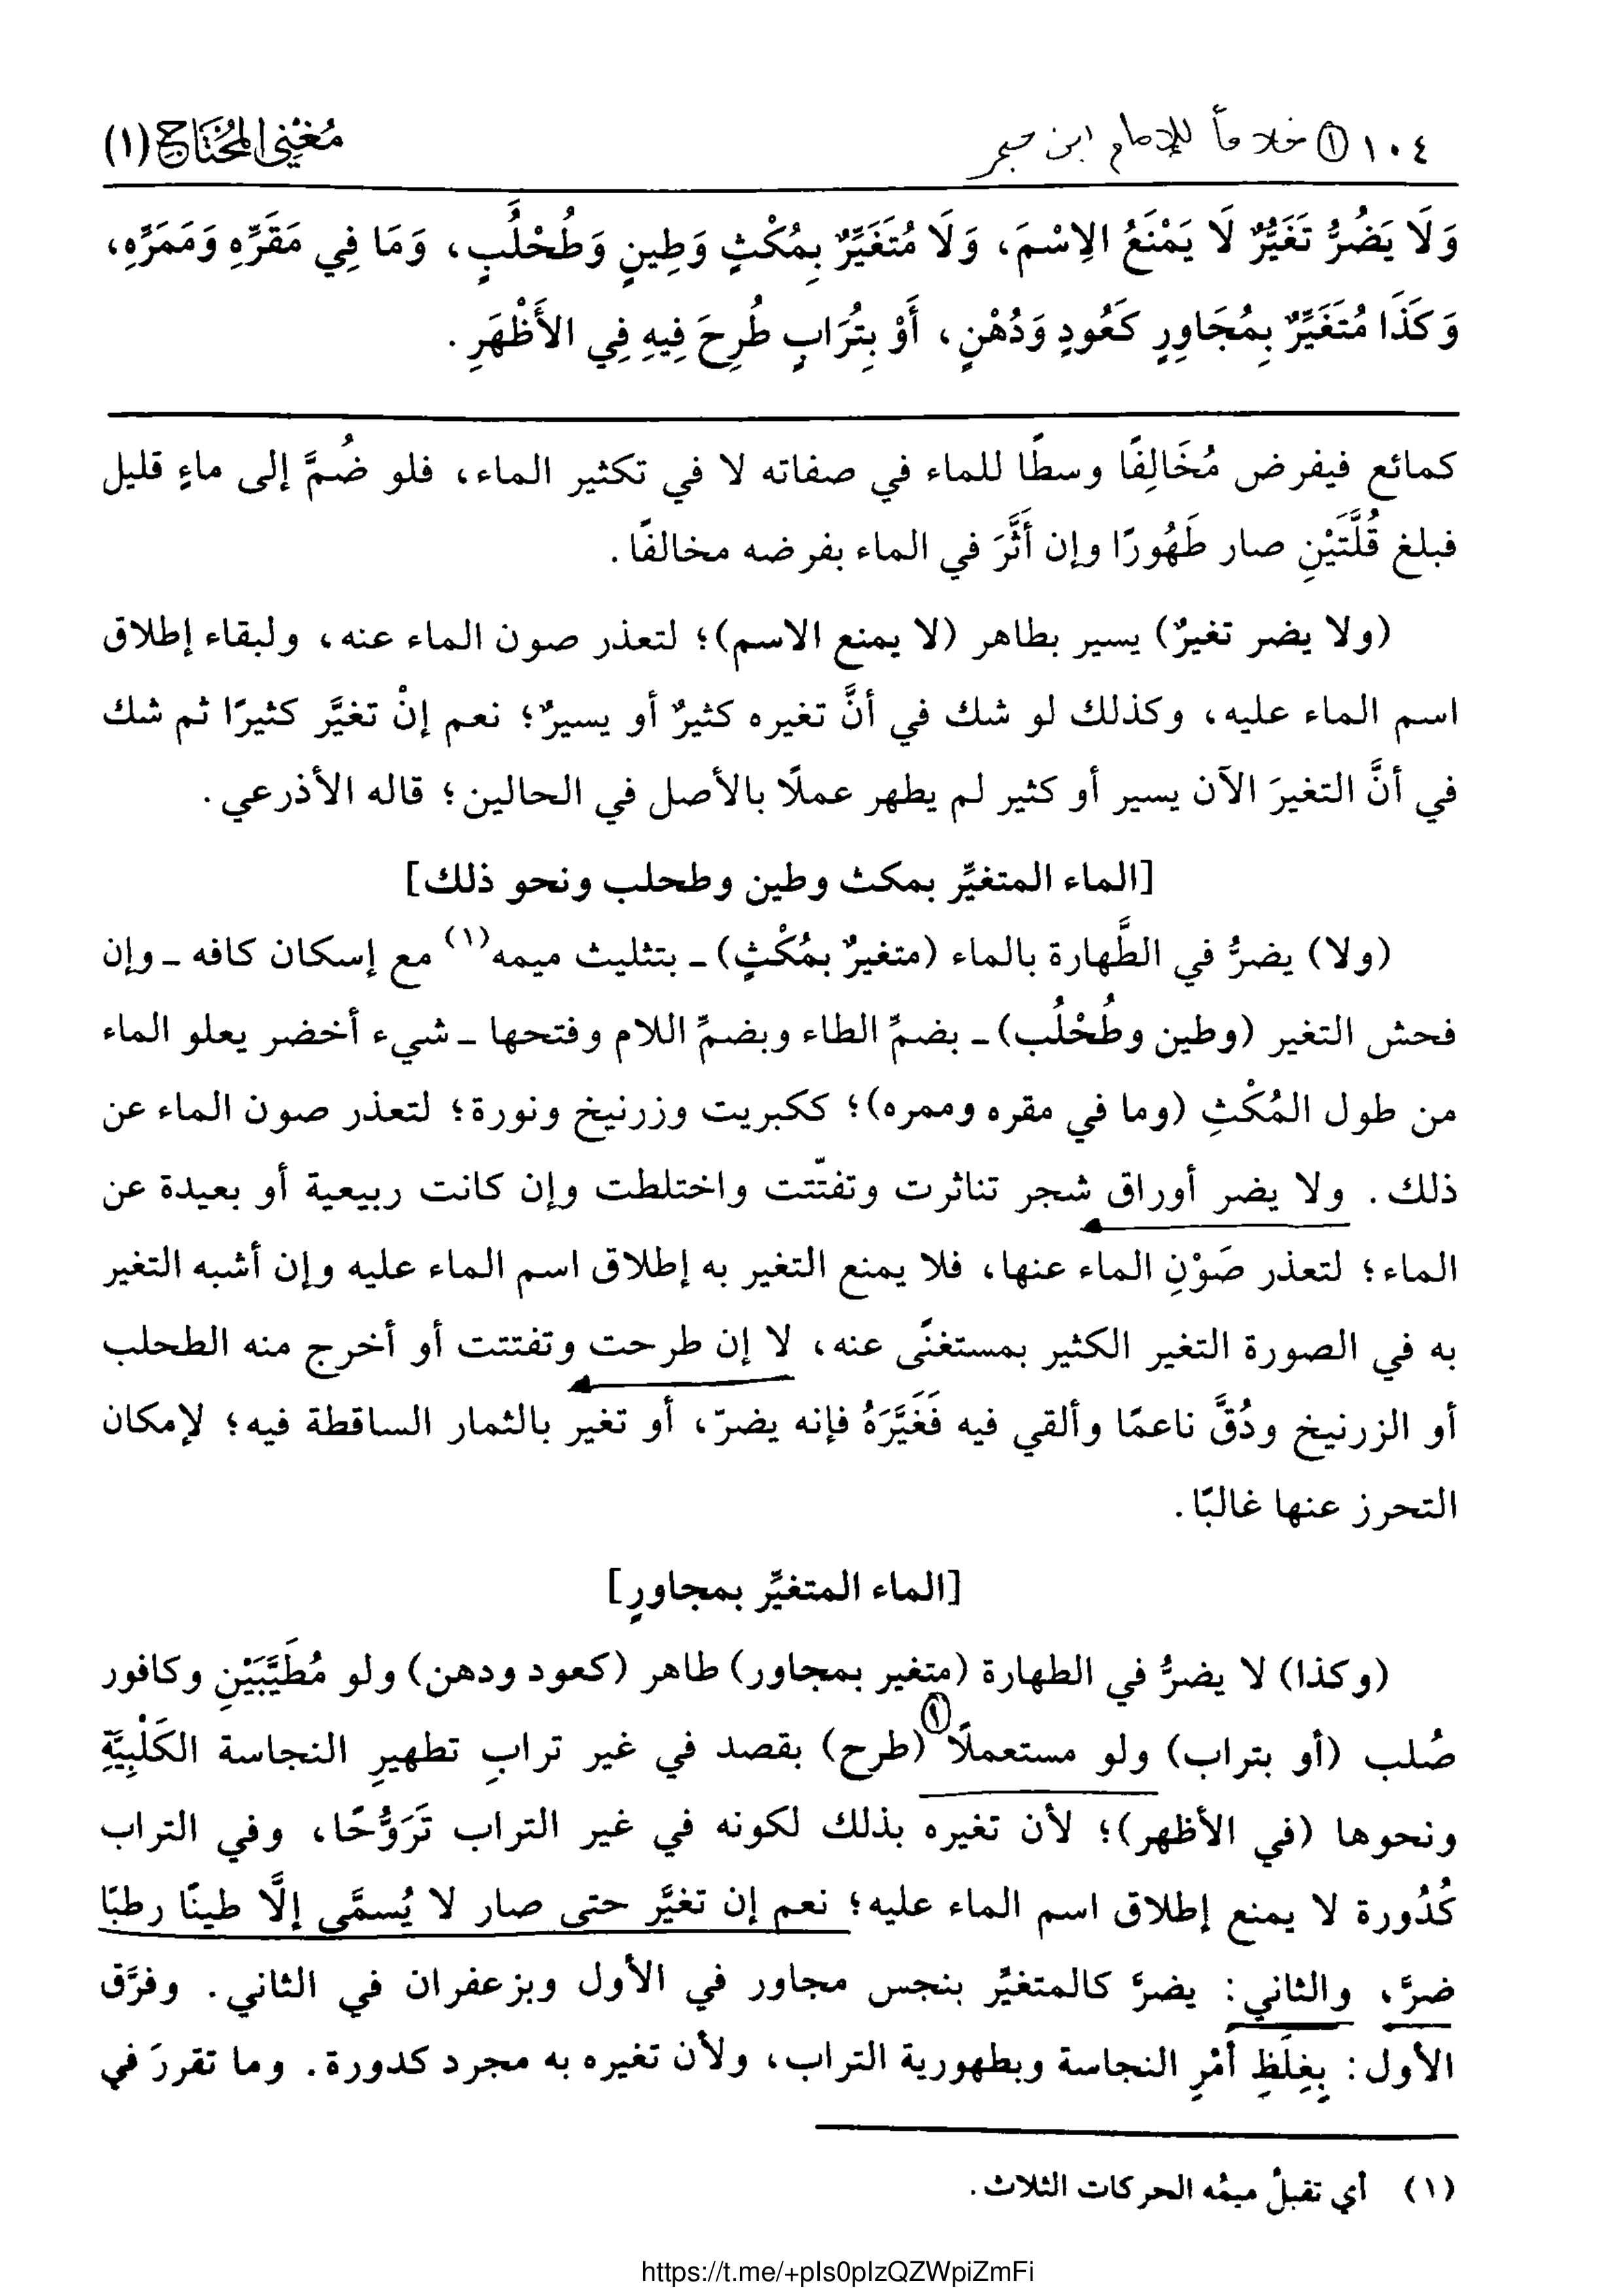 ١٠٤ ① خلافاً للإمام ابن حجر مُغْنِي المُحْتَاج (١)
وَلَا يَضُرُّ تَغَيُّرٌ لَا يَمْنَعُ الِاسْمَ، وَلَا مُتَغَيِّرٌ بِمُكْثٍ وَطِينٍ وَطُحْلُبٍ، وَمَا فِي مَقَرِّهِ وَمَمَرِّهِ،
وَكَذَا مُتَغَيِّرٌ بِمُجَاوِرٍ كَعُودٍ وَدُهْنٍ، أَوْ بِتُرَابٍ طُرِحَ فِيهِ فِي الأَظْهَرِ.
كمائع فيفرض مُخَالِفًا وسطًا للماء في صفاته لا في تكثير الماء، فلو ضُمَّ إلى ماءٍ قليل
فبلغ قُلَّتَيْنِ صار طَهُورًا وإن أَثَّرَ في الماء بفرضه مخالفًا.
(ولا يضر تغيرٌ) يسير بطاهر (لا يمنع الاسم)؛ لتعذر صون الماء عنه، ولبقاء إطلاق
اسم الماء عليه، وكذلك لو شك في أنَّ تغيره كثيرٌ أو يسيرٌ؛ نعم إنْ تغيَّر كثيرًا ثم شك
في أنَّ التغيرَ الآن يسير أو كثير لم يطهر عملًا بالأصل في الحالين؛ قاله الأذرعي.
[الماء المتغيِّر بمكث وطين وطحلب ونحو ذلك]
(ولا) يضرُّ في الطَّهارة بالماء (متغيرٌ بمُكْثٍ) ـ بتثليث ميمه(١) مع إسكان كافه ـ وإن
فحش التغير (وطين وطُحْلُب) ـ بضمِّ الطاء وبضمِّ اللام وفتحها ـ شيء أخضر يعلو الماء
من طول المُكْثِ (وما في مقره وممره)؛ ككبريت وزرنيخ ونورة؛ لتعذر صون الماء عن
ذلك. ولا يضر أوراق شجر تناثرت وتفتّتت واختلطت وإن كانت ربيعية أو بعيدة عن
الماء؛ لتعذر صَوْنِ الماء عنها، فلا يمنع التغير به إطلاق اسم الماء عليه وإن أشبه التغير
به في الصورة التغير الكثير بمستغنًى عنه، لا إن طرحت وتفتتت أو أخرج منه الطحلب
أو الزرنيخ ودُقَّ ناعمًا وألقي فيه فَغَيَّرَهُ فإنه يضرّ، أو تغير بالثمار الساقطة فيه؛ لإمكان
التحرز عنها غالبًا.
[الماء المتغيِّر بمجاورٍ]
(وكذا) لا يضرُّ في الطهارة (متغير بمجاور) طاهر (كعود ودهن) ولو مُطَيَّبَيْنِ وكافور
صُلب (أو بتراب) ولو مستعملًا ① (طرح) بقصد في غير ترابِ تطهيرِ النجاسة الكَلْبِيَّةِ
ونحوها (في الأظهر)؛ لأن تغيره بذلك لكونه في غير التراب تَرَوُّحًا، وفي التراب
كُدُورة لا يمنع إطلاق اسم الماء عليه؛ نعم إن تغيَّر حتى صار لا يُسمَّى إلَّا طينًا رطبًا
ضرَّ، والثاني: يضرَّ كالمتغيِّر بنجس مجاور في الأول وبزعفران في الثاني. وفرَّق
الأول: بِغِلَظِ أَمْرِ النجاسة وبطهورية التراب، ولأن تغيره به مجرد كدورة. وما تقررَ في
(١) أي تقبلُ ميمُه الحركات الثلاث.
https://t.me/+pIs0pIzQZWpiZmFi